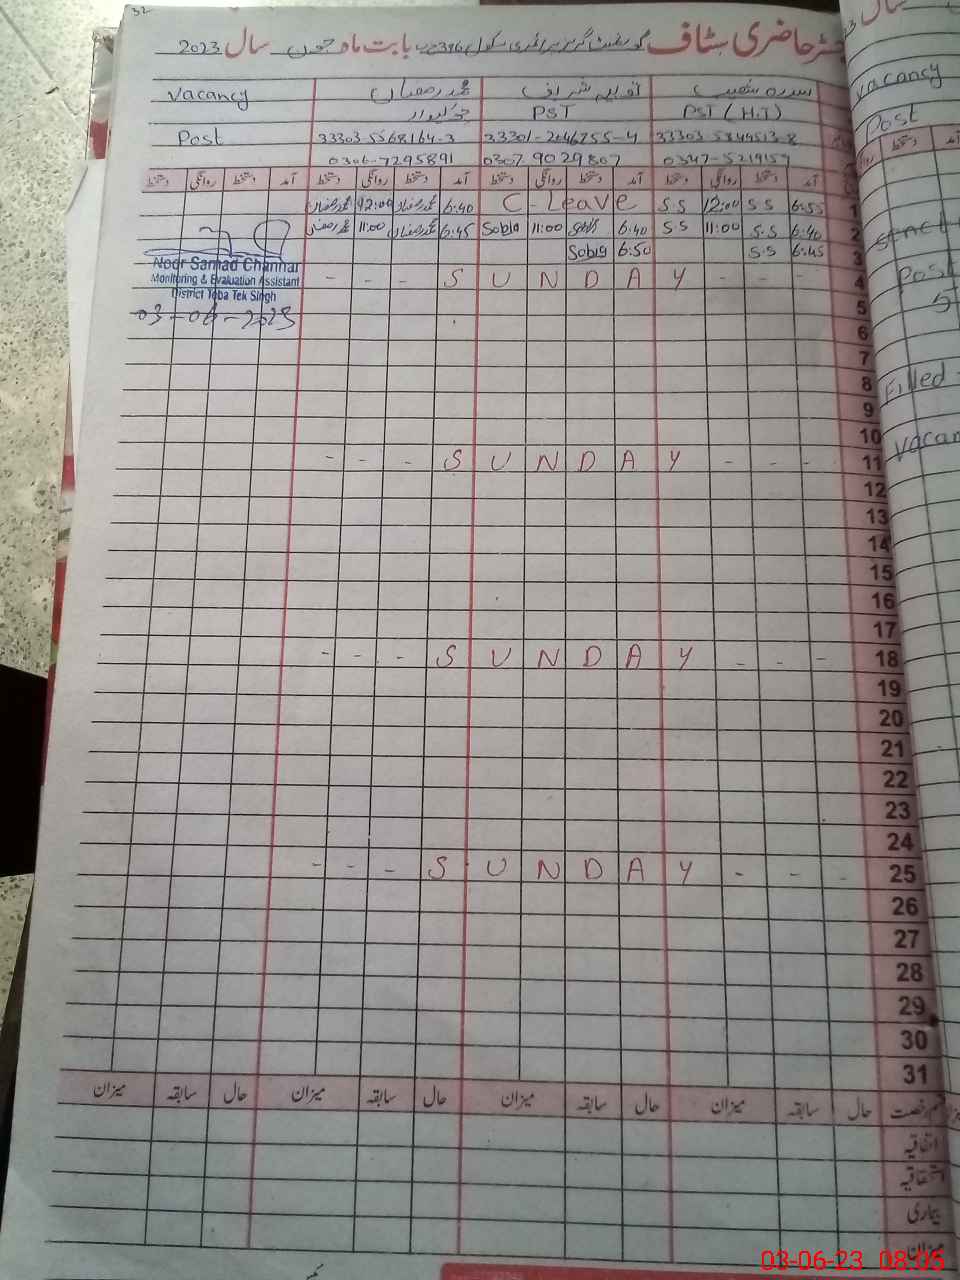 32
رجسٹر حاضری سٹاف گورنمنٹ گرلز پرائمری سکول 396 ج ب بابت ماہ جون سال 2023
سدرہ شعیب محمد رمضان Vacancy
PST (H.T) PST چوکیدار
33303-5568164-3 Post
0306-7295891 0307-9029807 0347-5219157
آمد دستخط روانگی دستخط آمد دستخط روانگی دستخط آمد دستخط روانگی دستخط آمد دستخط روانگی دستخط
1 6:55 S.S 12:00 S.S C-Leave 6:40 محمد رمضان 12:00 محمد رمضان
2 6:40 S.S 11:00 S.S 6:40 Sobia 11:00 Sobia 6:45 محمد رمضان 11:00 محمد رمضان
3 6:45 S.S 6:50 Sobia
Noor Samad Channar
Monitoring & Evaluation Assistant
District Toba Tek Singh
03-06-2023
- - - S U N D A Y - - - 4
5
6
7
8
9
10
- - - S U N D A Y - - - 11
12
13
14
15
16
17
- - - S U N D A Y - - - 18
19
20
21
22
23
24
- - - S U N D A Y - - - 25
26
27
28
29
30
31
قسم رخصت حال سابقہ میزان حال سابقہ میزان حال سابقہ میزان حال سابقہ میزان
اتفاقیہ
استحقاقیہ
بیماری
میزان
سال
Vacancy
Post
Post
5
Filled
03-06-23 08:05